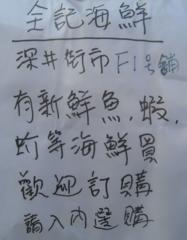 全記海鮮
深井街市F1号舖
有新鮮魚,蝦,
蚧等海鮮買
歡迎訂購
請入內選購